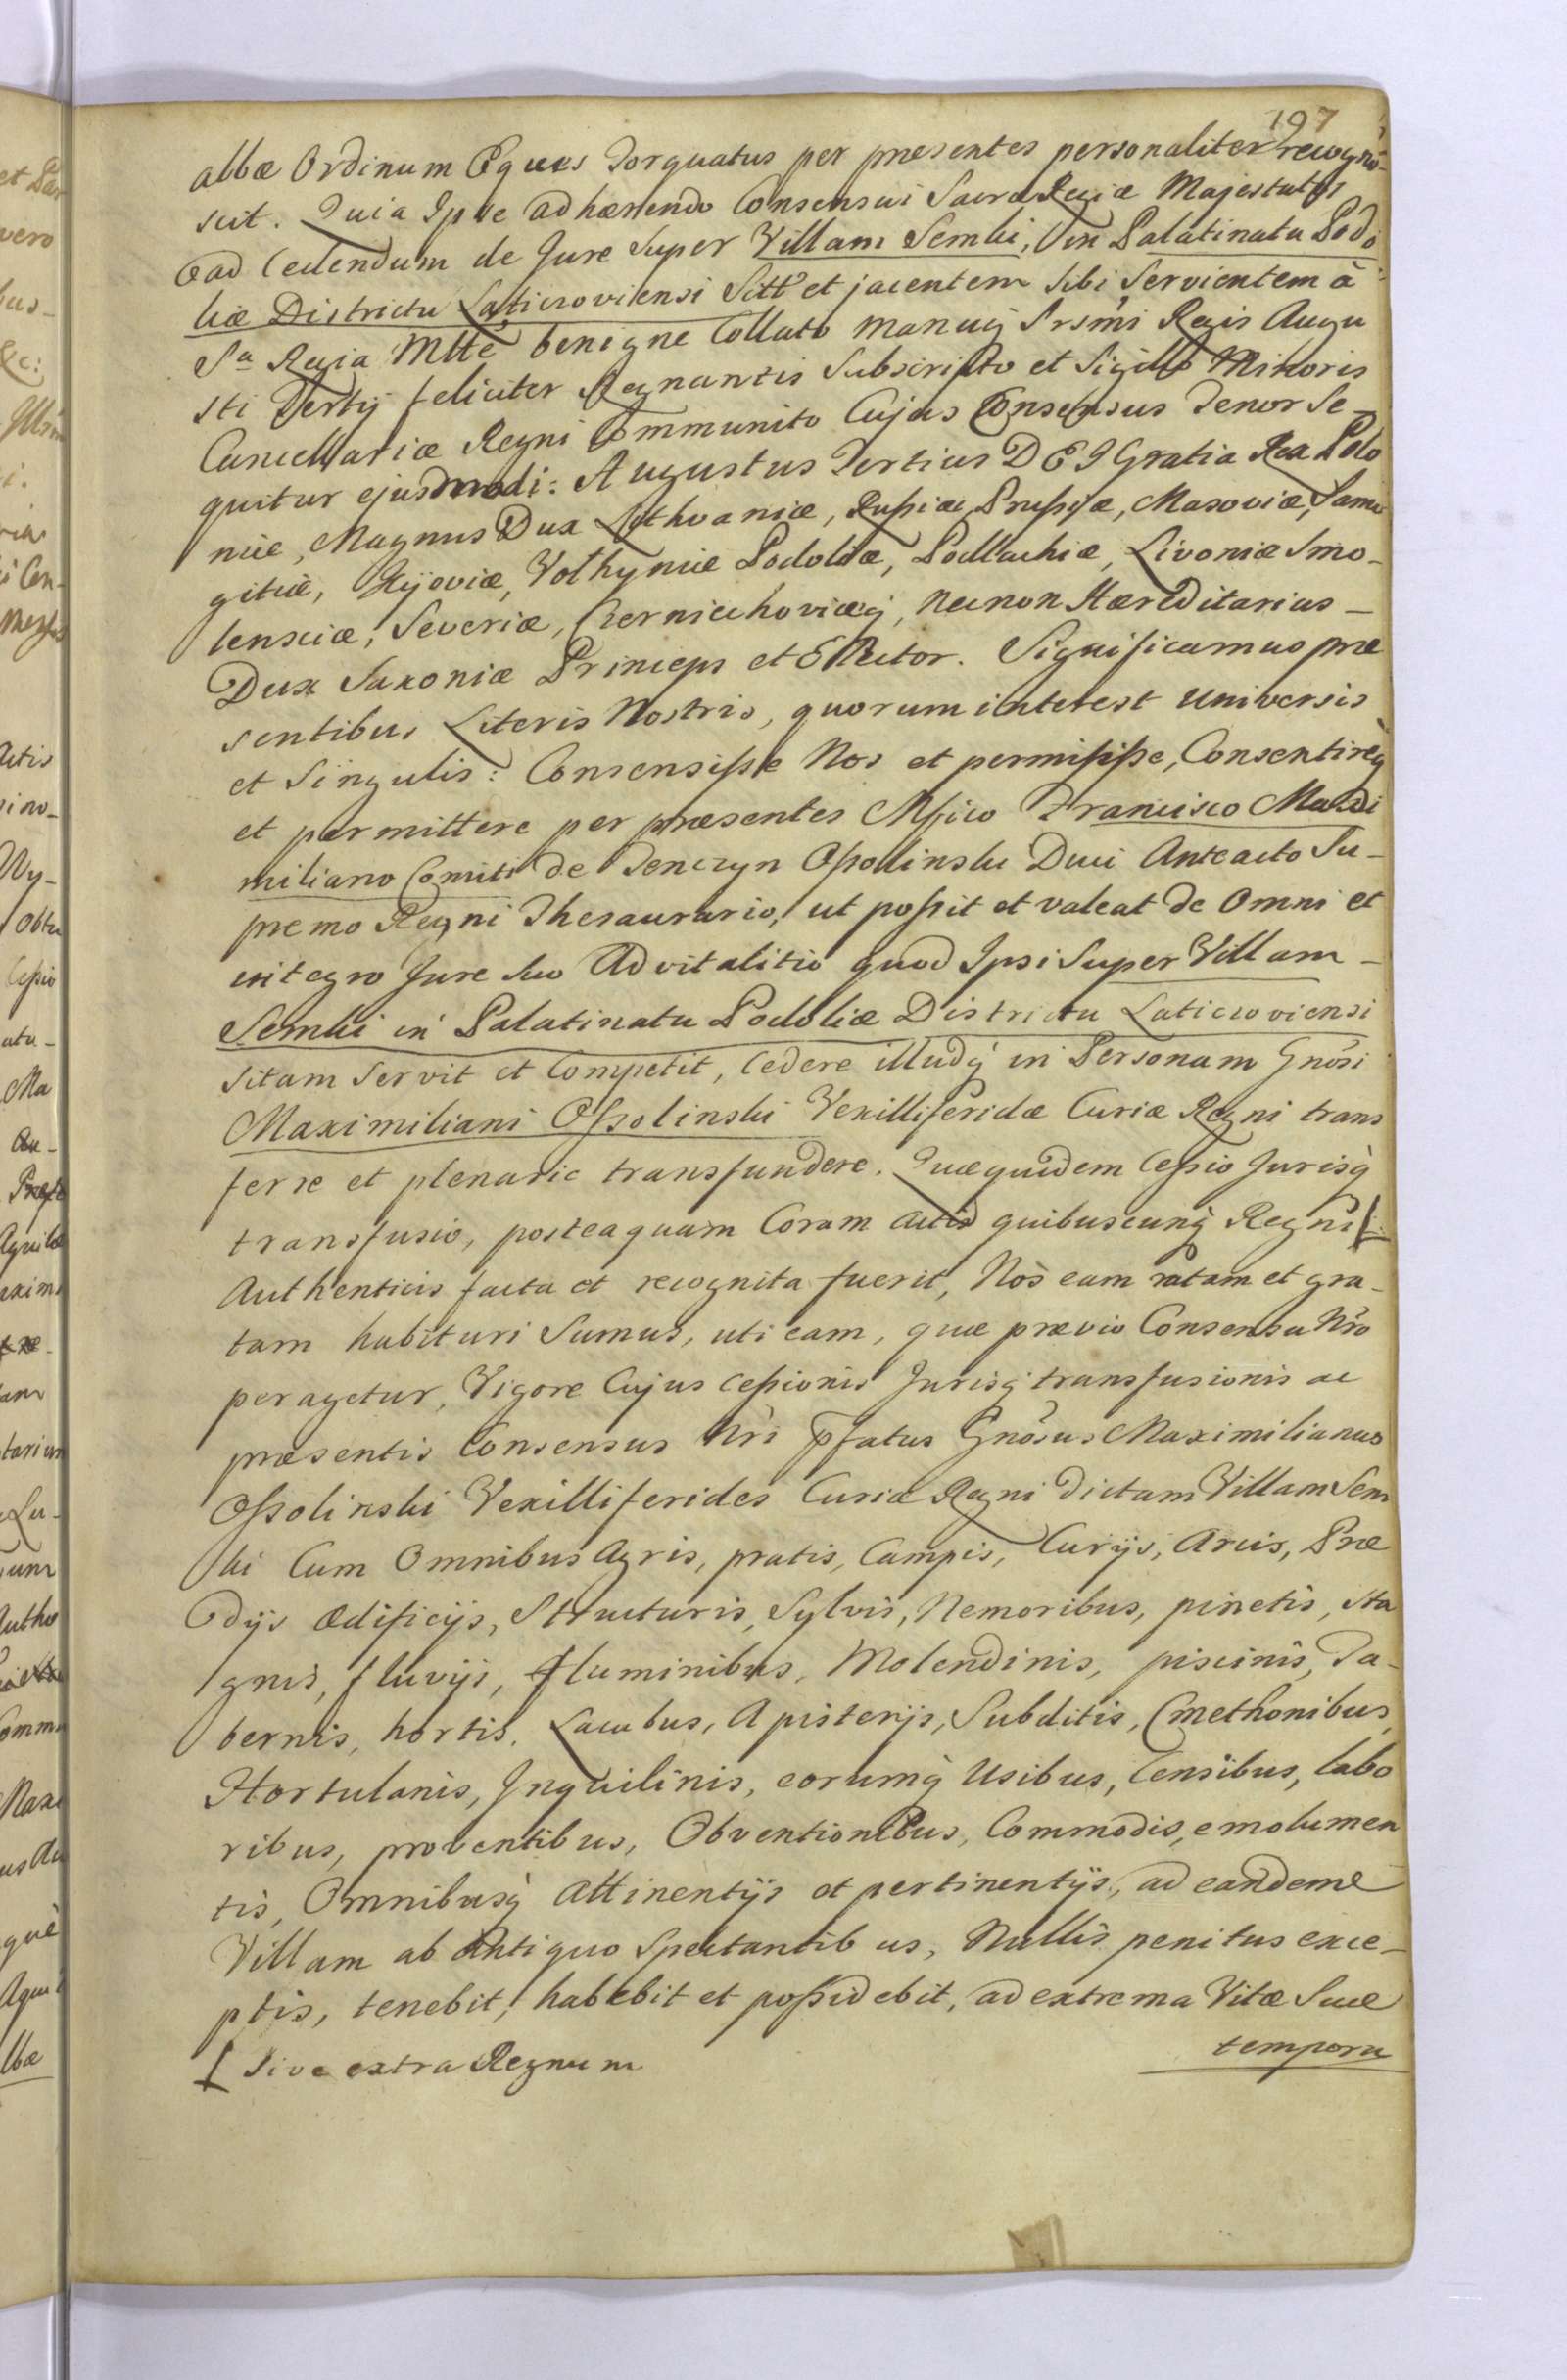 197
albæ Ordinum Eques Torquatus per præsentes personaliter recogno-
scit. Quia Ipse adhærendo Consensui Sacræ Regiæ Majestatis
ad Cedendum de Jure Super Villam Semki, in Palatinatu Podo
liæ Districtu Laticzoviensi Sitt et jacentem sibi Servientem à
Sa Regia Mtte benigne Collato manuq Srsmi Regis Augu
sti Tertij feliciter Regnantis Subscripto et Sigillo Minoris
Cancellariæ Regni Communito Cujus Consensus Tenor Se-
quitur ejusdmodi: Augustus Tertius DEI Gratia Rex Polo
niæ, Magnus Dux Lithvaniæ, Rußiæ, Prußiæ, Masoviæ, Samo
gitiæ, Kijoviæ, Volhyniæ Podoliæ, Podlachiæ, Livoniæ Smo-
lensciæ, Severiæ, Czerniechoviæq, necnon Hæreditarius -
Dux Saxoniæ Princeps et Elector. Significamus præ
sentibus Literis Nostris, quorum interest Universis
et Singulis: Consensiße Nos et permisiße, Consentireq
et permittere per præsentes Mfico Francisco Maxi
miliano Comiti de Tenczyn Oßolinski Duci Anteacto Su-
premo Regni Thesaurario, ut poßit et valeat de Omni et
integro Jure suo Advitalitio quod Ipsi Super Villam -
Semki in Palatinatu Podoliæ Districtu Laticzoviensi
sitam Servit et Competit, Cedere illudq in Personam Gnosi
Maximiliani Oßolinski Vexilliferidæ Curiæ Regni trans
ferre et plenarie transfundere. Quæquidem Ceßio Jurisq
transfusio, posteaquam Coram actis quibuscunq Regni
Authenticis facta et recognita fuerit, Nos eam ratam et gra-
tam habituri Sumus, uti eam, quæ prævio Consensu Nro
peragetur, Vigore Cujus ceßionis Jurisq transfusionis ac
præsentis Consensus Nri pfatus Gnosus Maximilianus
Oßolinski Vexilliferides Curiæ Regni dictam Villam Sem
ki Cum Omnibus Agris, pratis, Campis, Curijs, Areis, Præ
dijs Ædificijs, Structuris, Sylvis, Nemoribus, pinetis, sta
gnis, fluvijs, fluminibus, Molendinis, piscinis, Ta-
bernis, hortis, Lacubus, Apisterijs, Subditis, Cmethonibus,
Hortulanis, Inquilinis, eorumq Usibus, Censibus, labo
ribus, proventibus, Obventionibus, Commodis, emolumen
tis, Omnibusq Attinentijs et pertinentijs, ad eandem
Villam ab Antiquo Spectantibus, Nullis penitus exce-
ptis, tenebit, habebit et poßidebit, ad extrema Vitæ Suæ
tempora
Sive extra Regnum